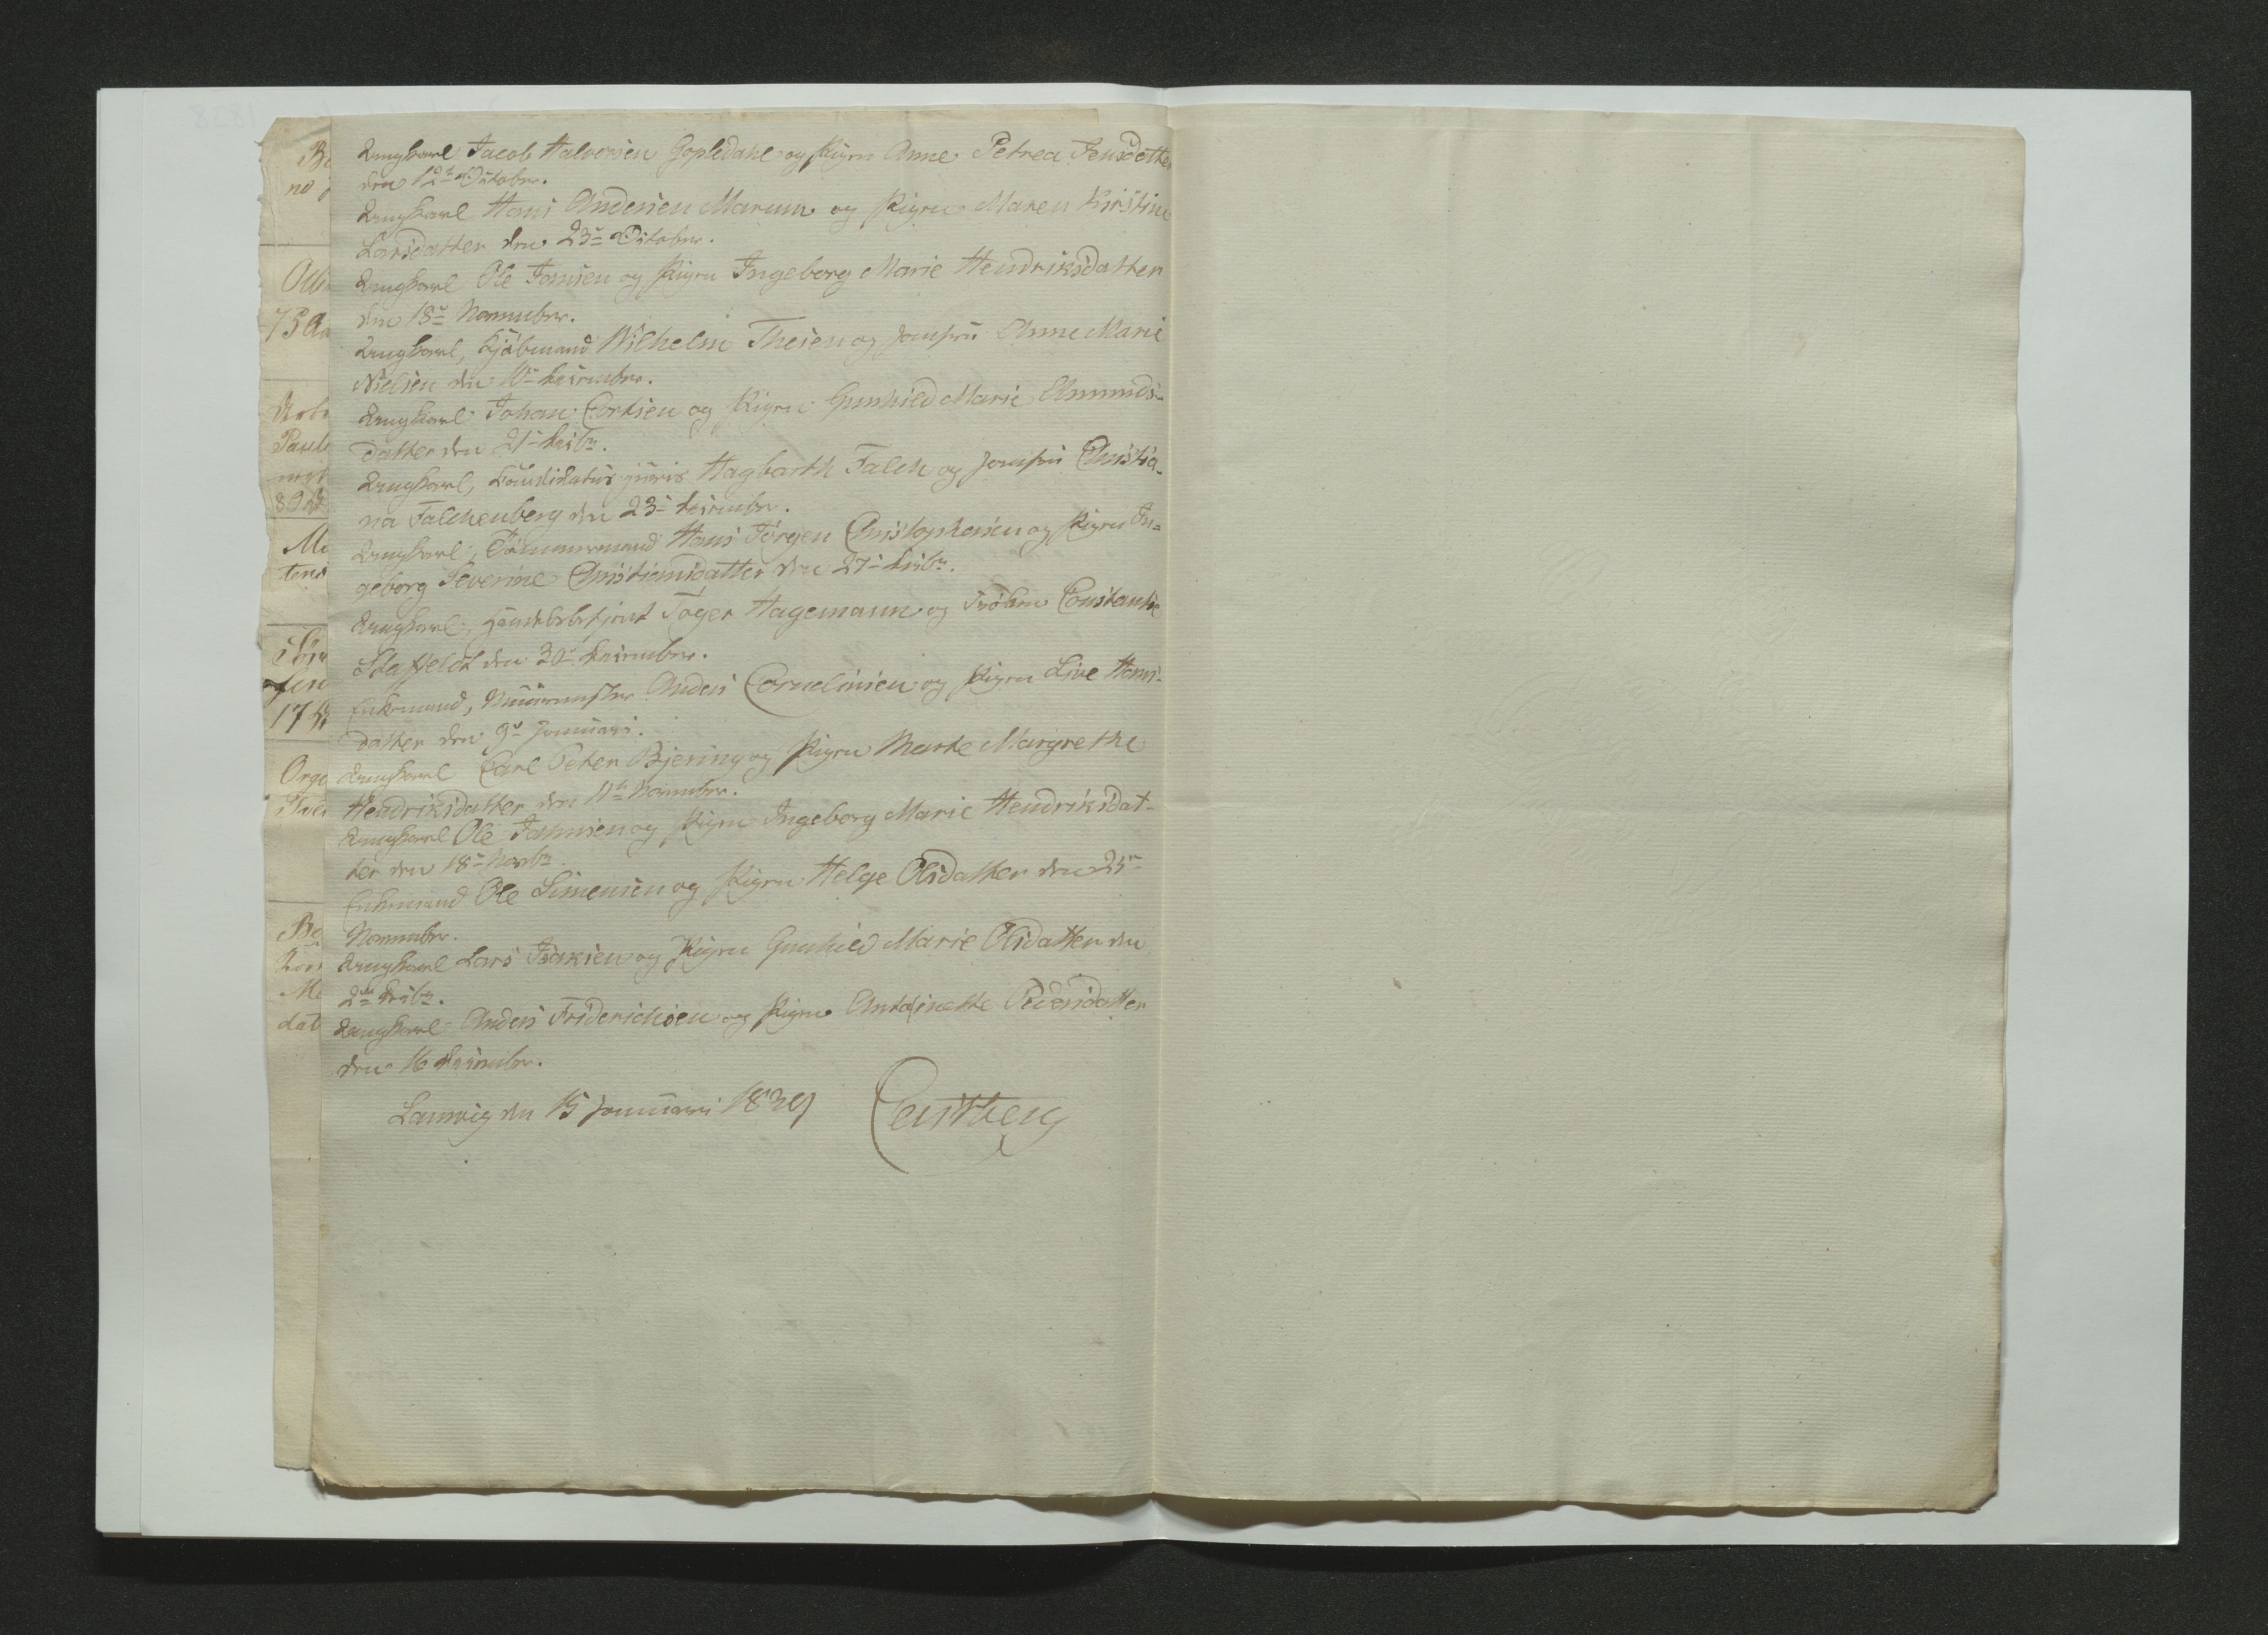 Ungkarl Jacob Halvorsen Gopledahl og Pigen Anne Petrea Jensdatter
den 12te October.
Ungkarl Hans Andersen Marum og Pigen Maren Kirstine
Larsdatter den 23de October.
Ungkarl Ole Jansen og Pigen Ingeborg Marie Hendriksdatter
den 18de November.
Ungkarl, Kjøbmand Wilhelm Thesen og Jomfru Anne Marie
Nielsen den 10de December.
Ungkarl Johan Cortsen og Pigen Gunhild Marie Amunds-
datter den 21de Decbr.
Ungkarl, Candidatus juris Hagbarth Falch og Jomfru Christia-
na Falchenberg den 23de December.
Ungkarl, Tømmermand Hans Jørgen Christophersen og Pigen In-
geborg Severine Christiensdatter den 27de Decbr.
Ungkarl, Handelsbetjent Tøger Hagemann og Frøken Constance
Staffeldt den 30de December.
Enkemand, Muurmester Anders Corneliusen og Pigen Live Hans-
datter den 9de Januari.
Ungkarl Carl Peter Bjering og Pigen Marte Margrethe
Hendriksdatter den 11te November.
Ungkarl Ole Johnsen og Pigen Ingeborg Marie Hendriksdat-
ter den 18de Novbr.
Enkemand Ole Simensen og Pigen Helge Olsdatter den 25de
November.
Ungkarl Lars Isaksen og Pigen Gunhild Marie Olsdatter den
2den Decbr.
Ungkarl Anders Friderichsen og Pigen Antoinette Pedersdatter
den 16 December.
Laurvig den 15 Januari 1839